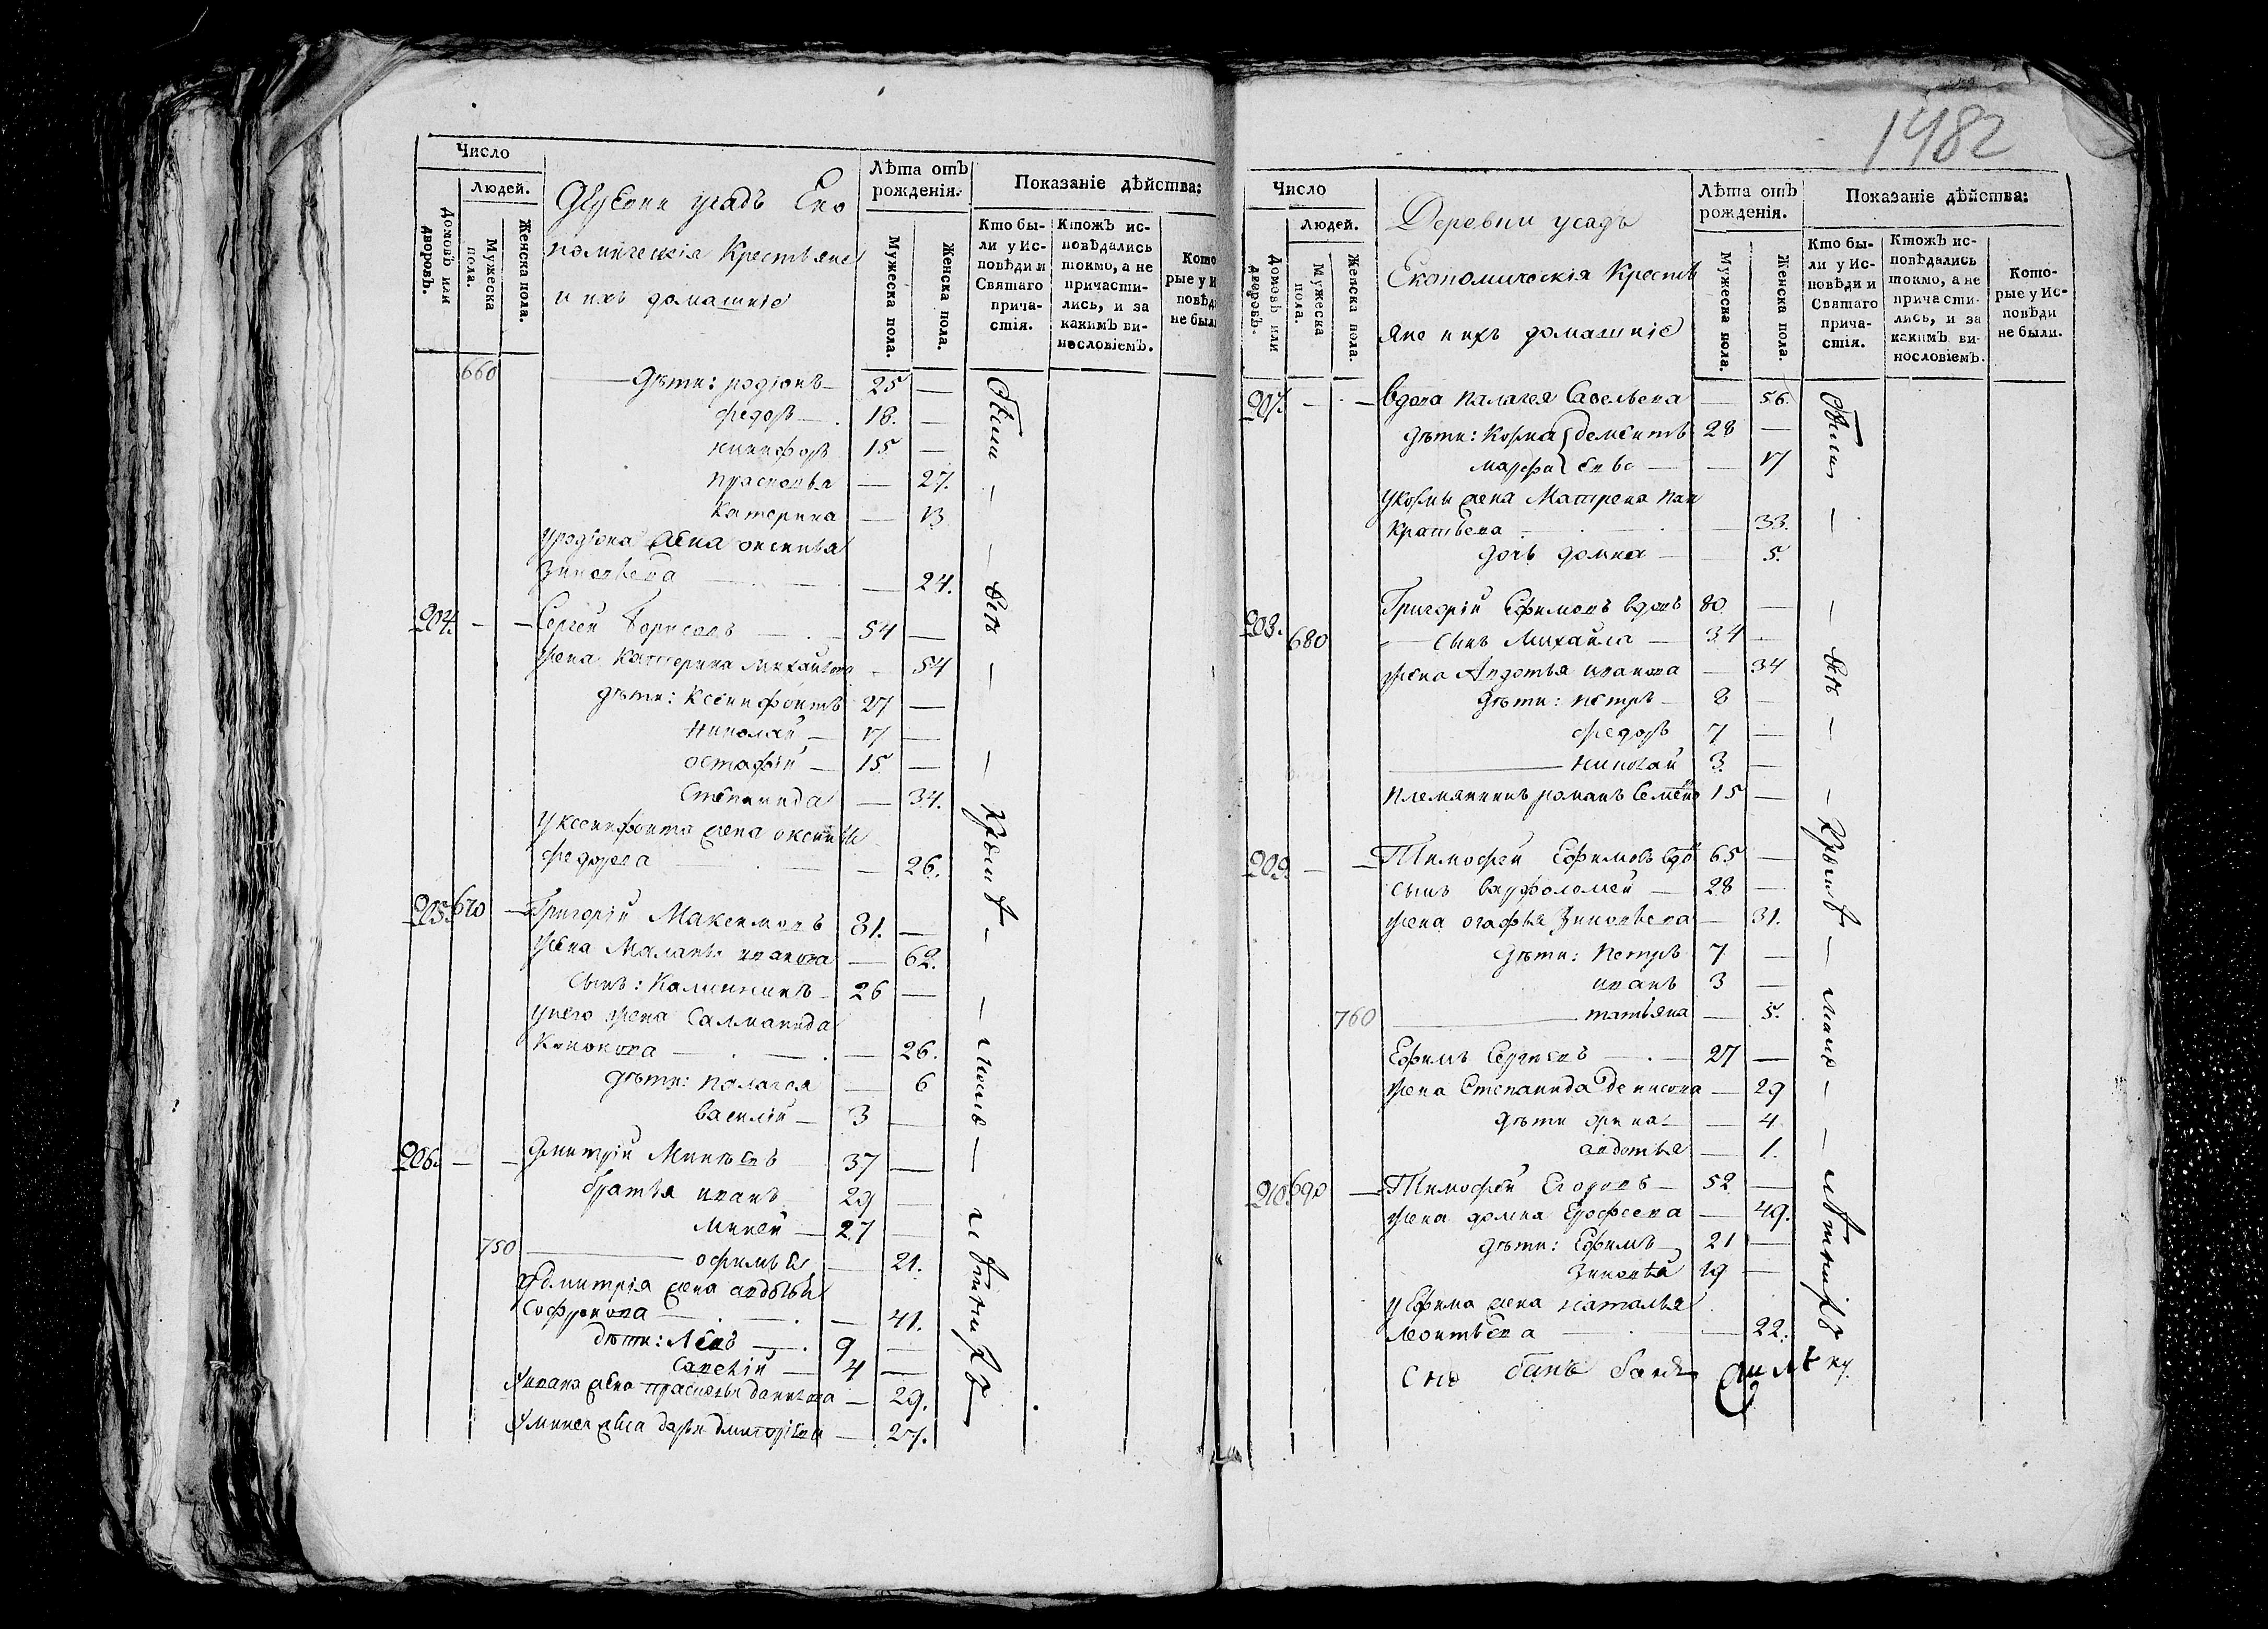 Число
Людей.
Домовъ или дворовъ.
Мужеска пола.
Женска пола.
усадъ Еко
номическія Крестьяне
и ихъ домашніе
Лѣта отъ рожденія.
Мужеска пола.
Женска пола.
Показаніе дѣйства:
Кто были у Исповѣди и Святаго причастія.
Ктожъ исповѣдались токмо, а не причастились, и за какимъ винословіемъ.
Кото
рые у И
повѣд
не был
660 Дѣти: родіонъ 25
федоръ 18.
никифоръ 15
прасковья 27.
Катерина 13
уродіона жена оксинья
Зиновьева 24.
204. Сергей Борисовъ 54
жена Катерина михайлова 54
дѣти: Ксенифонтъ 27
Николай 17
остафѣй 15
Степанида 34.
у ксенифонта жена оксинья
федорова 26.
205. 670 Григорій Максимовъ 81.
жена Маланья иванова 62.
сынъ: Калинникъ 26
унего жена Саламанида
Кононова 26.
дѣти: палагея 6
василій 3
206. Дмитрій Минѣевъ 37
братья иванъ 29
миней 27
750 офимья 21.
удмитрія жена авдотья
Софронова 41.
дѣти: Левъ 9
Савелій 4
уивана жена прасковья данилова 29.
уминея жена дарья дмитріева 27.
были
всѣ
Крьмѣ
мало
лѣтнихъ
1482
Число
Людей.
Домовъ или дворовъ.
Мужеска пола.
Женска пола.
Деревни усадъ
Економическія Кресть
яне и ихъ домашніе
Лѣта отъ рожденія.
Мужеска пола.
Женска пола.
Показаніе дѣйства:
Кто были у Исповѣди и Святаго причастія.
Ктожъ исповѣдались токмо, а не причастились, и за какимъ винословіемъ.
Которые у Исповѣди не были.
207. вдова палагея Савельева 56.
дѣти: Козма дементь 28
марфа евы 17
укозмы жена Матрена пан
кратьева 33.
дочь домна 5.
208. Григорій Ефимовъ вдовъ 80
680 сынъ Михайла 34
жена Авдотья иванова 34
дѣти: петръ 8
федоръ 7
николай 3.
племянникъ романъ Семено 15
209. Тимофей Ефимовъ вдо 65
сынъ варфоломей 28
жена огафья Зиновьева 31.
дѣти: петръ 7
иванъ 3
760 татьяна 5.
Ефимъ Сергѣевъ 27
жена Степанида Денисова 29
дѣти орина 4
авдотья 1.
210. 690 Тимофей Егоровъ 52
жена домна Ерофеева 49.
дѣти: Ефимъ 21
Зиновѣй 19
у Ефима жена наталья
леонтьева 22.
были
всѣ
Крьмѣ
мало
лѣтнихъ